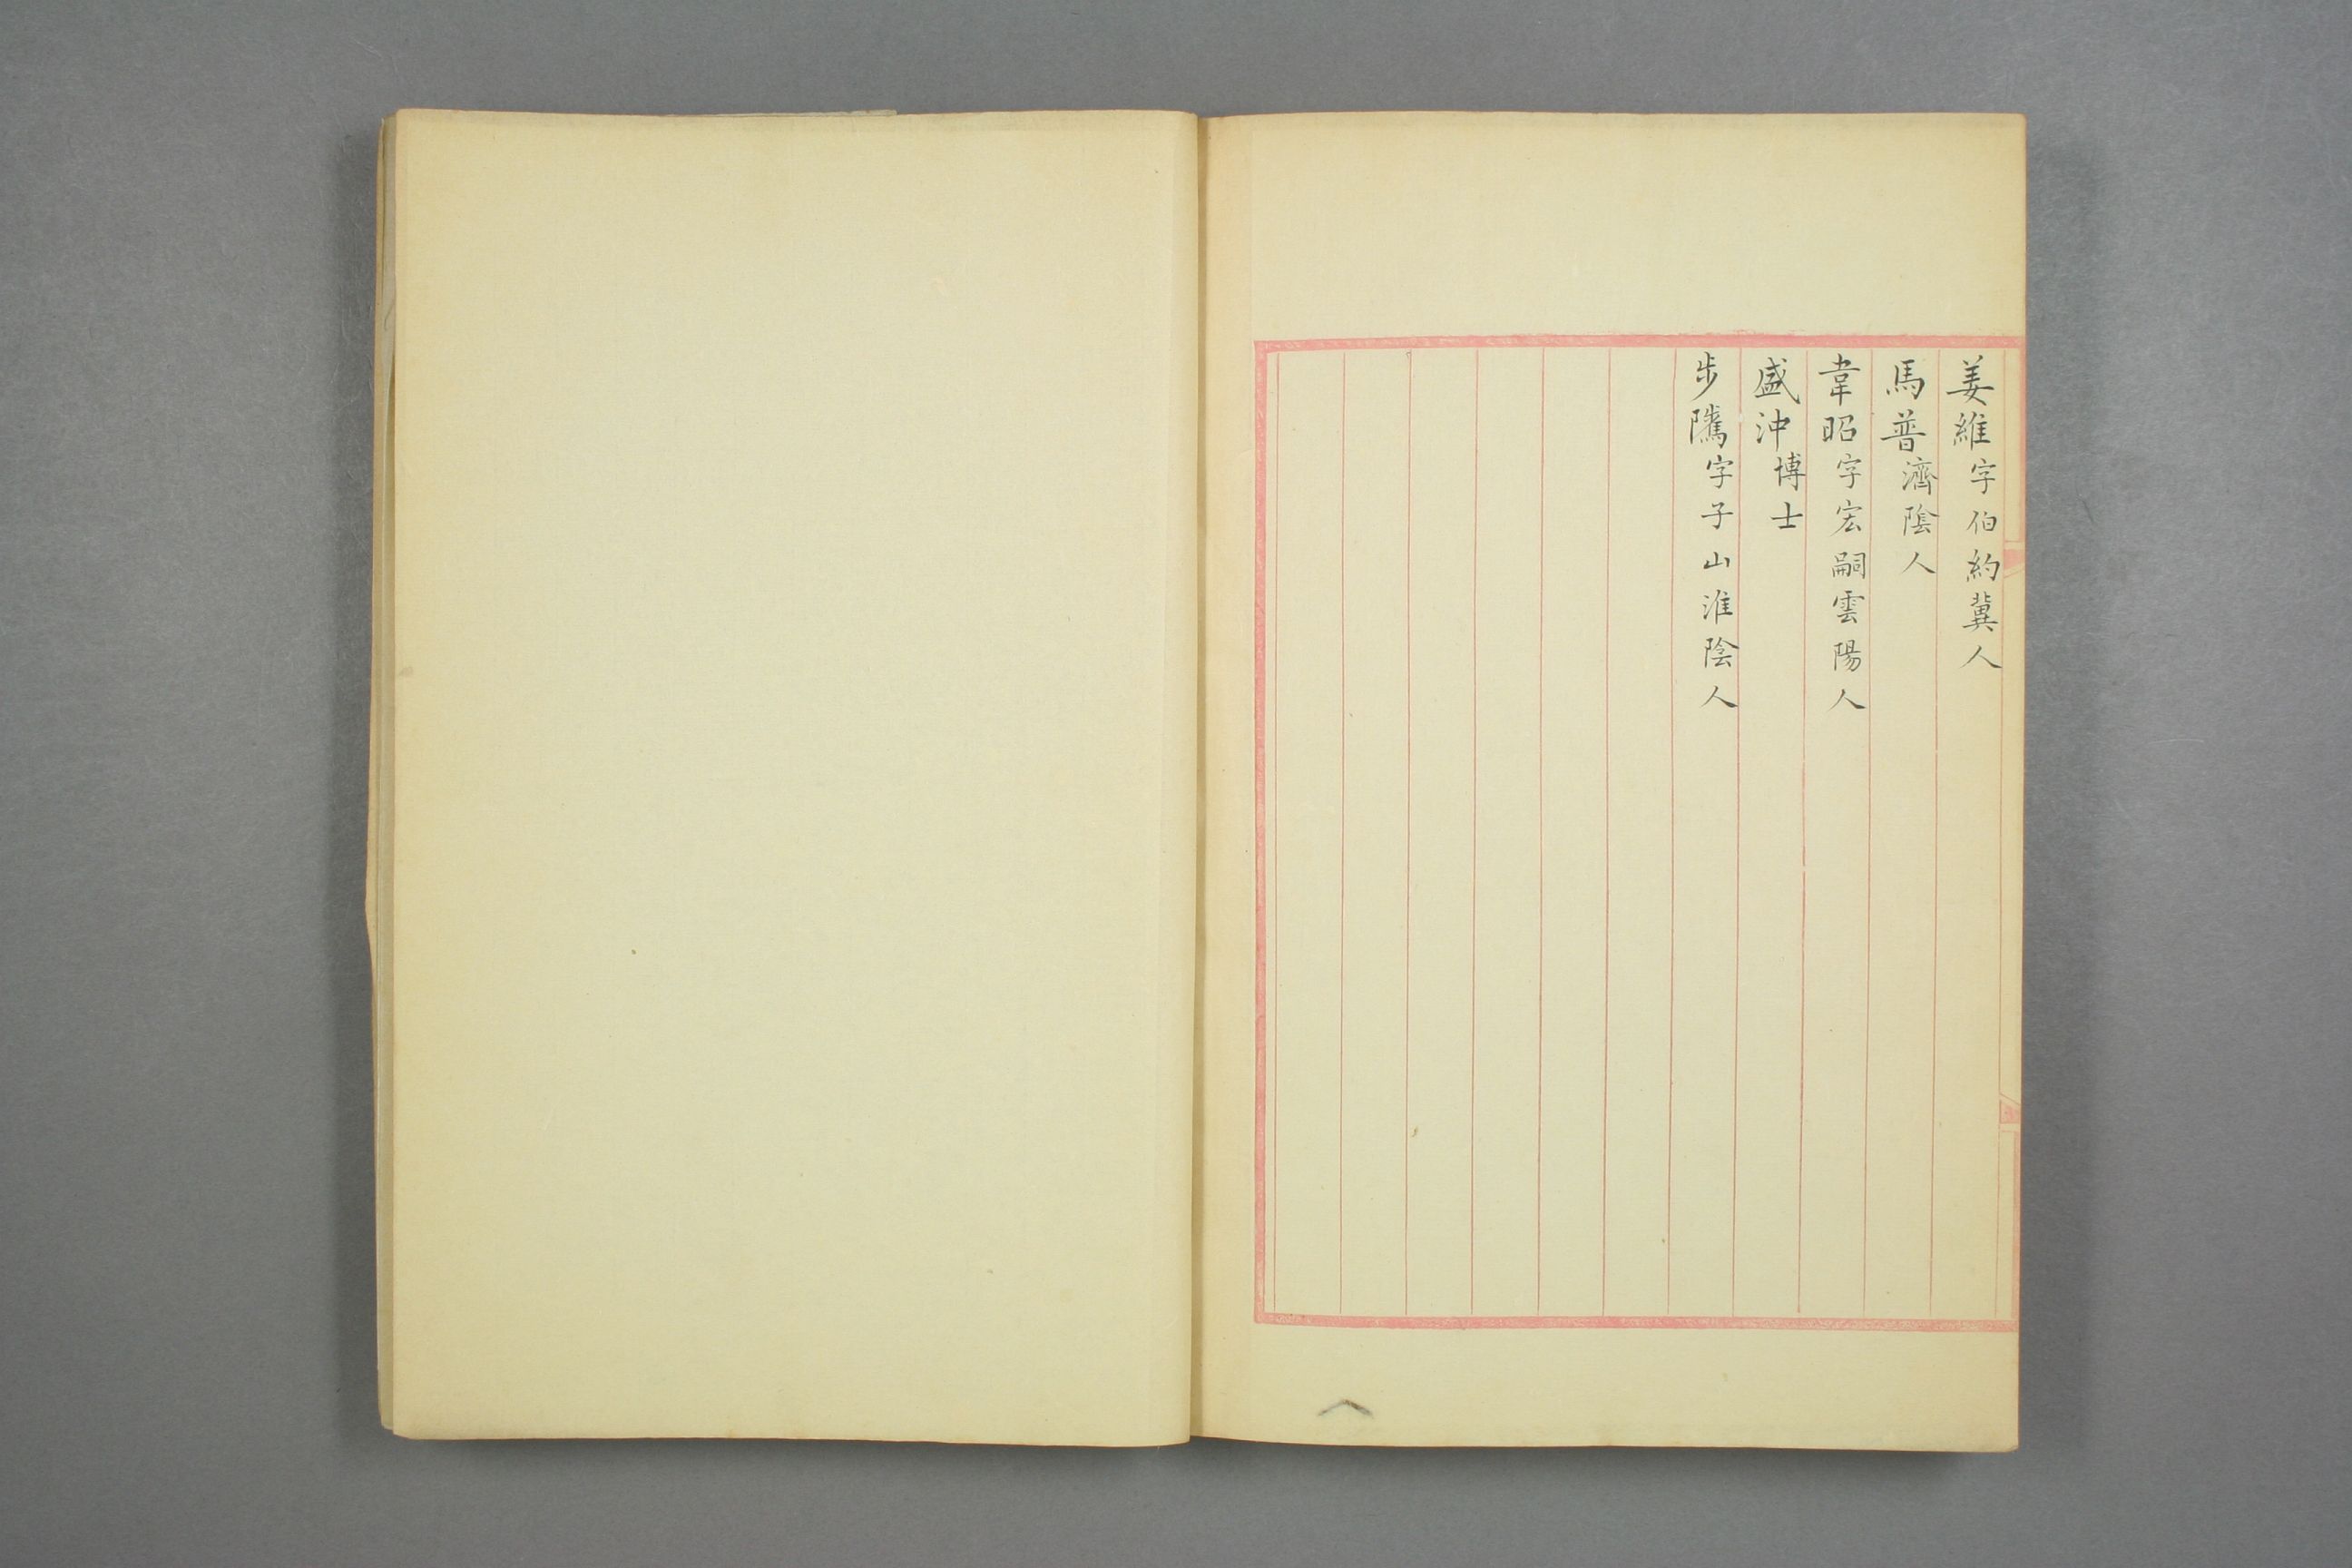 姜維字伯約冀人
馬普濟陰人
韋昭字宏嗣雲陽人
盛沖博士
步隲字子山淮陰人